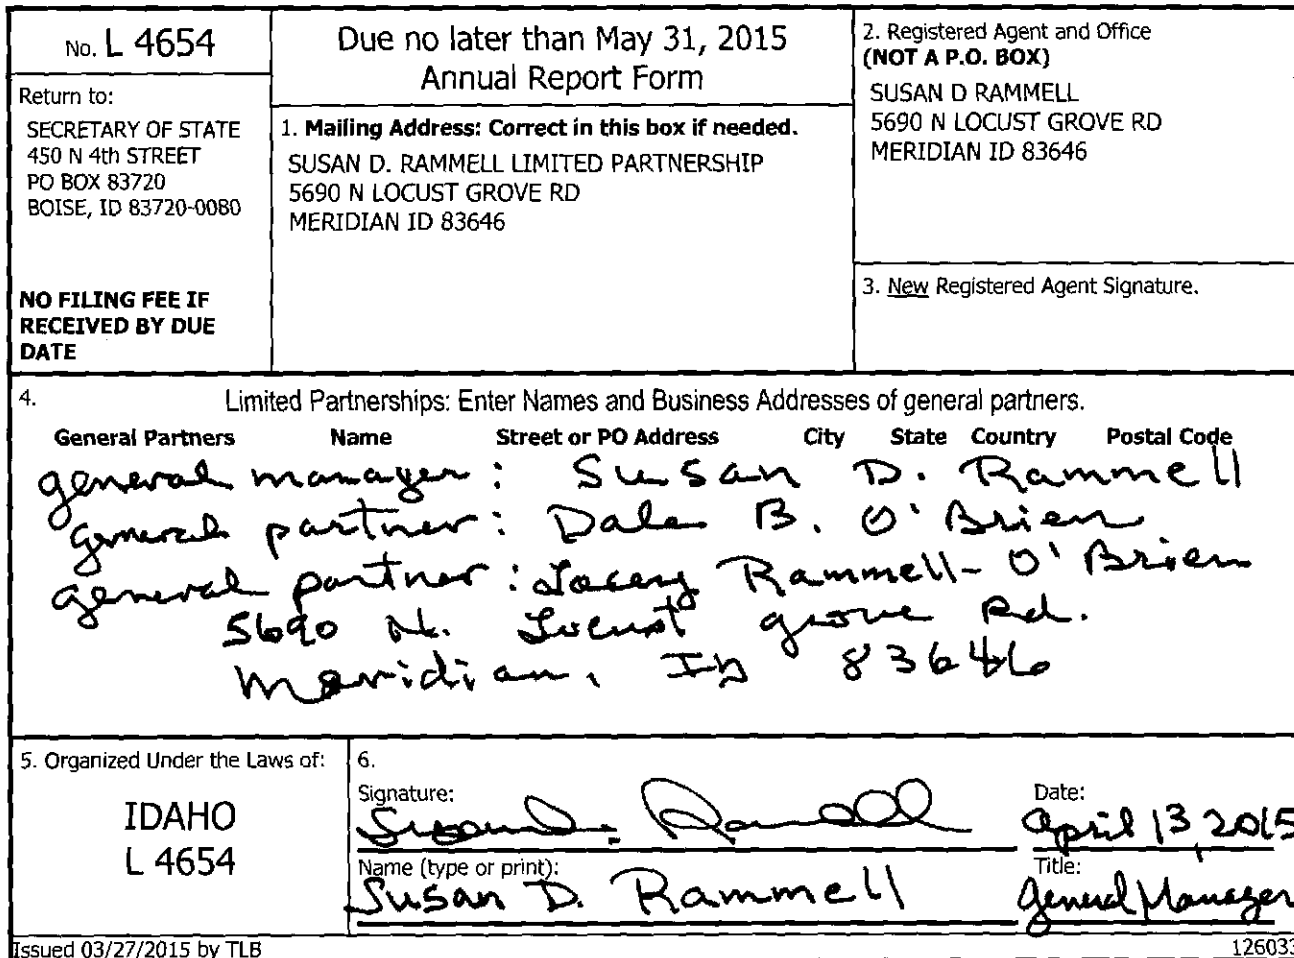 No. L 4654
Return to:
SECRETARY OF STATE
450 N 4th STREET
PO BOX 83720
BOISE, ID 83720-0080
NO FILING FEE IF
RECEIVED BY DUE
DATE
Due no later than May 31, 2015
Annual Report Form
1. Mailing Address: Correct in this box if needed.
SUSAN D. RAMMELL LIMITED PARTNERSHIP
5690 N LOCUST GROVE RD
MERIDIAN ID 83646
2. Registered Agent and Office
(NOT A P.O. BOX)
SUSAN D RAMMELL
5690 N LOCUST GROVE RD
MERIDIAN ID 83646
3. New Registered Agent Signature.
4. Limited Partnerships: Enter Names and Business Addresses of general partners.
General Partners Name Street or PO Address City State Country Postal Code
general manager: Susan D. Rammell
general partner: Dale B. O'Brien
general partner: Lacey Rammell-O'Brien
5690 N. Locust grove Rd.
Meridian, ID 83646
5. Organized Under the Laws of:
IDAHO
L 4654
6.
Signature:
Susan D. Rammell
Date:
April 13, 2015
Name (type or print):
Susan D. Rammell
Title:
General Manager
Issued 03/27/2015 by TLB
126033